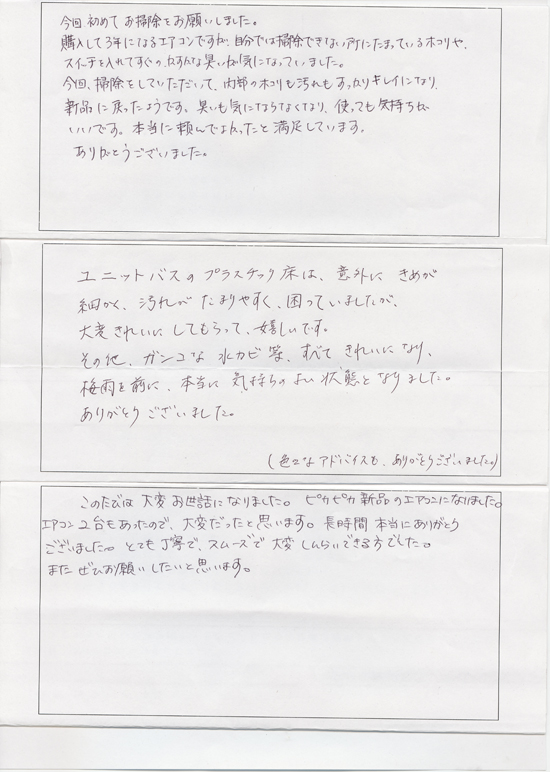 今回初めてお掃除をお願いしました。
購入して3年になるエアコンですが、自分では掃除できない所にたまっているホコリや、
スイッチを入れてすぐの、かすかな臭いが気になっていました。
今回、掃除をしていただいて、内部のホコリも汚れもすっかりキレイになり、
新品に戻ったようです。臭いも気にならなくなり、使っても気持ちが
いいです。本当に頼んでよかったと満足しています。
ありがとうございました。
ユニットバスのプラスチック床は、意外に きめが
細かく、汚れが たまりやすく、困っていましたが、
大変きれいに してもらって、嬉しいです。
その他、ガンコな 水カビ等、すべて きれいになり、
梅雨を前に、本当に 気持ちのよい状態となりました。
ありがとうございました。
(色々なアドバイスも、ありがとうございました。)
このたびは 大変 お世話になりました。 ピカピカ 新品のエアコンになりました。
エアコン 2台もあったので、大変だったと思います。長時間 本当にありがとう
ございました。とても丁寧で、スムーズで 大変 しんらいできる方でした。
また ぜひお願いしたいと思います。